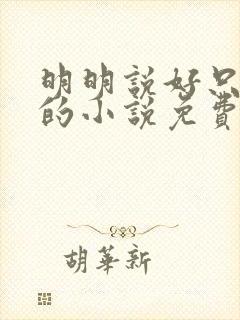 明明說好只
的小說免費
胡華新